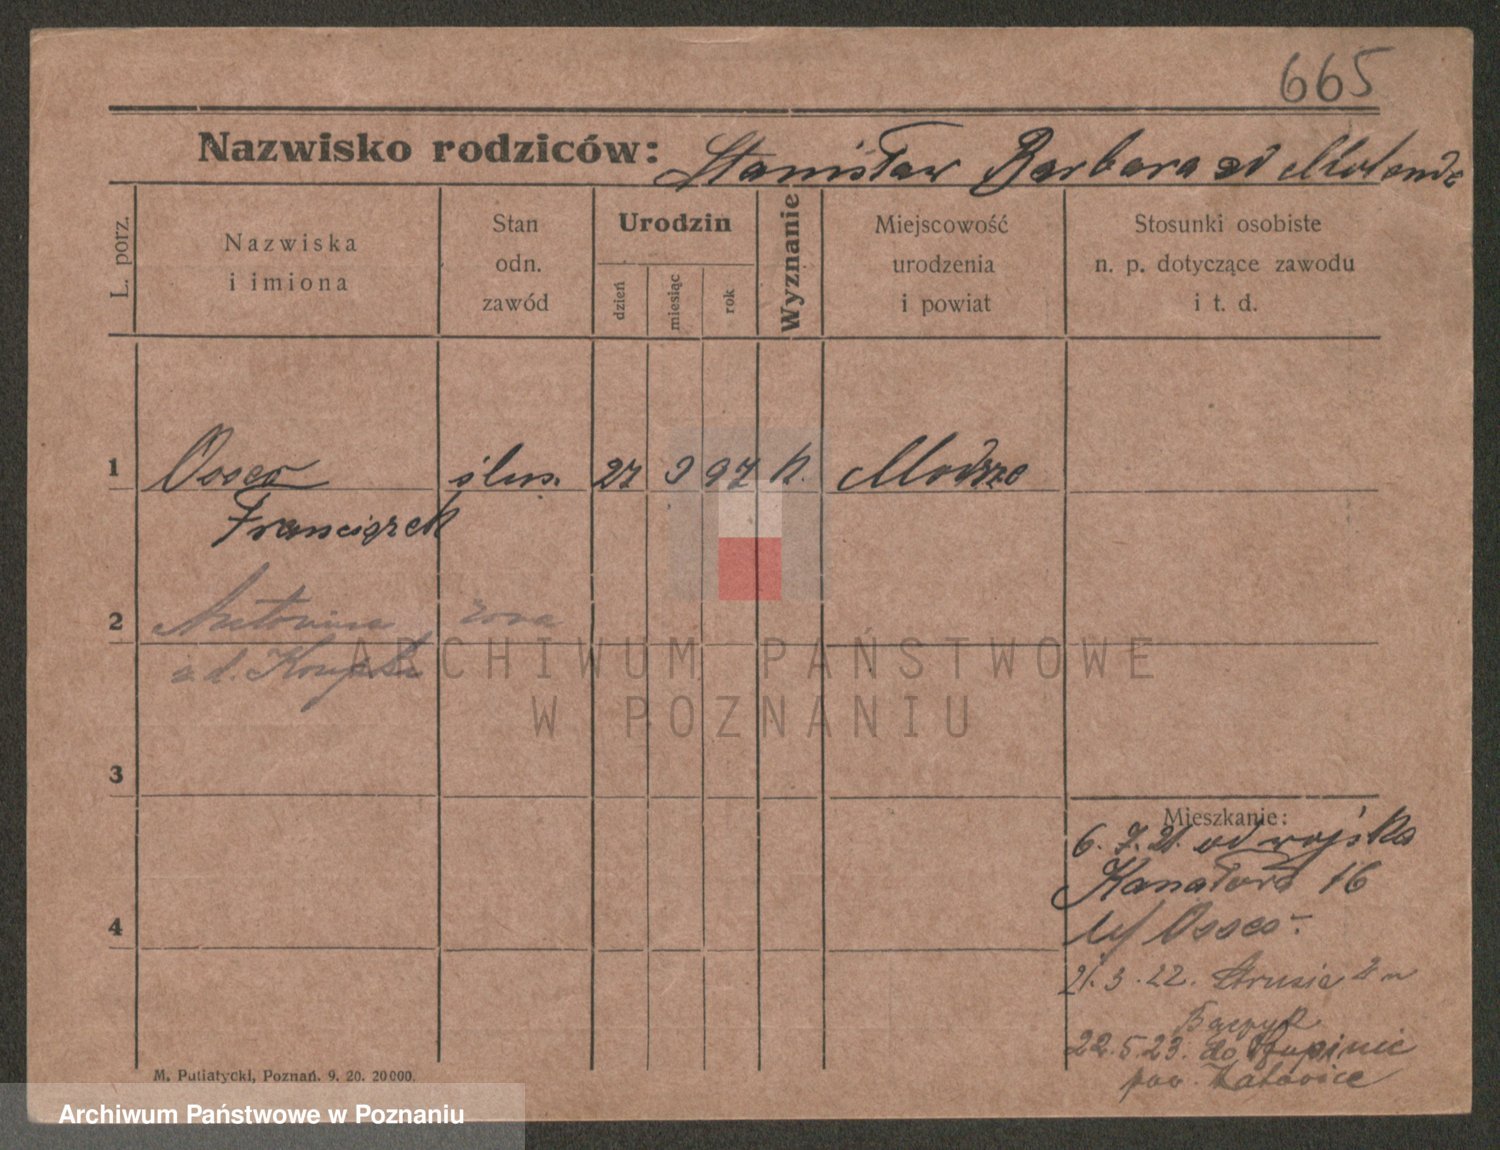 665
Nazwisko rodziców: Stanisław Barbara
L. porz.
Nazwiska i imiona
Stan odn. zawód
Urodzin
dzień
miesiąc
rok
Wyznanie
Miejscowość urodzenia i powiat
Stosunki osobiste n. p. dotyczące zawodu i t. d.
1 ślus. 27 9 97 k.
Franciszek
2 Antonina żona
3
4
Mieszkanie:
6. 7. 21. od wojska
Kanałowa 16
21. 3. 22. Strusia
22. 5. 23. do
pow. Katowice
M. Putiatycki, Poznań. 9. 20. 20000.
ARCHIWUM PAŃSTWOWE
W POZNANIU
Archiwum Państwowe w Poznaniu